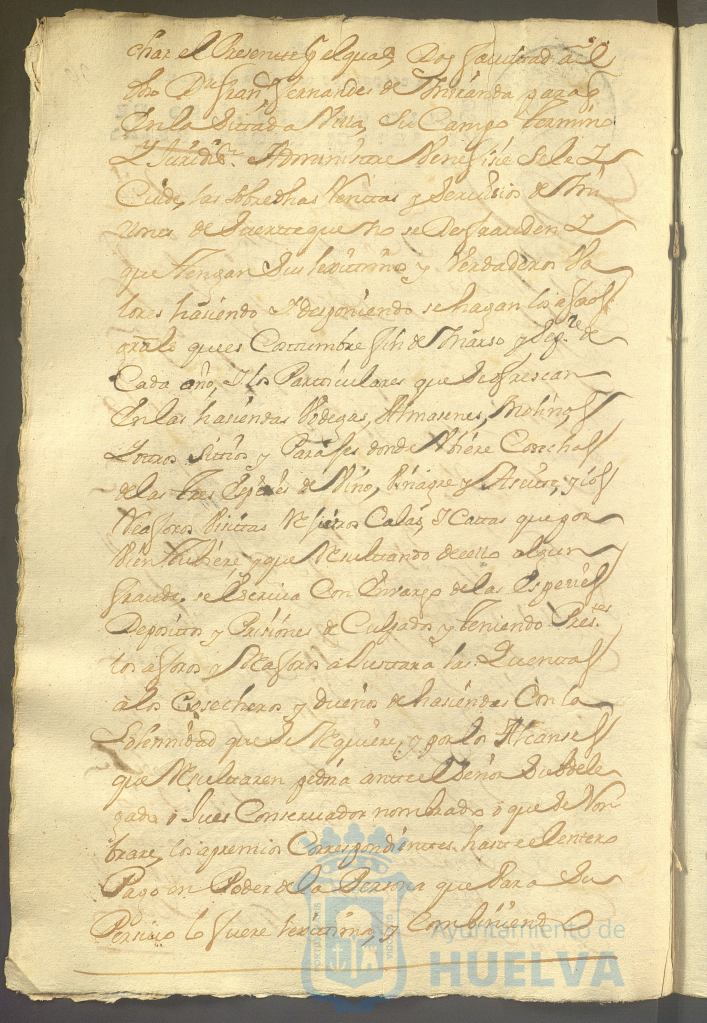 char el Presente y elqual Doy facultad a el
dho Dn Franco Fernandes de Miranda para q
En la Dictada Villa, Su Campo termino
Y Juridion Administre Venefisie Sele Y
Cuide, las sobredhas Rentas y Servicios de Mi
llones de Suerte que no se Defrauden Y
que tengan Sus lexitimos y Verdaderos Va
lores hasiendo Y desponiendo se hagan los aforos
grales que es Costumbre fin de Marso y Sepre de
Cada año, Y los Particulares que Se ofrescan
En las hasiendas Vodegas, Almasenes, Molinos
Y otros Sitios y Parajes donde Ubiere Cosechas
de las tres Espeses de Vino, Vinagre y Aseite, y los
Reaforos Visitas Rejistros Calas, Y Catas que por
Vien tubiere y que Resultando de ello algun
fraude se Escriva Con Envargo de las Espeses
Depositos y Prisiones de Culpados y teniendo Pres
tos aforos y Reaforos aJustara las Quentas
a los Cosecheros y dueños de hasiendas Con la
Solemnidad que Se Requiere, y por los Alcanses
que Resultaren pedira ante el Señor Subdele
gado o Jues Conservador nombrado o que Se Nom
brare, los apremios Correspondientes hasta el entero
Pago en Poder de la Persona que Para Su
Persivo lo fuere lexitima, y Combiniendo
Ayuntamiento de
HUELVA